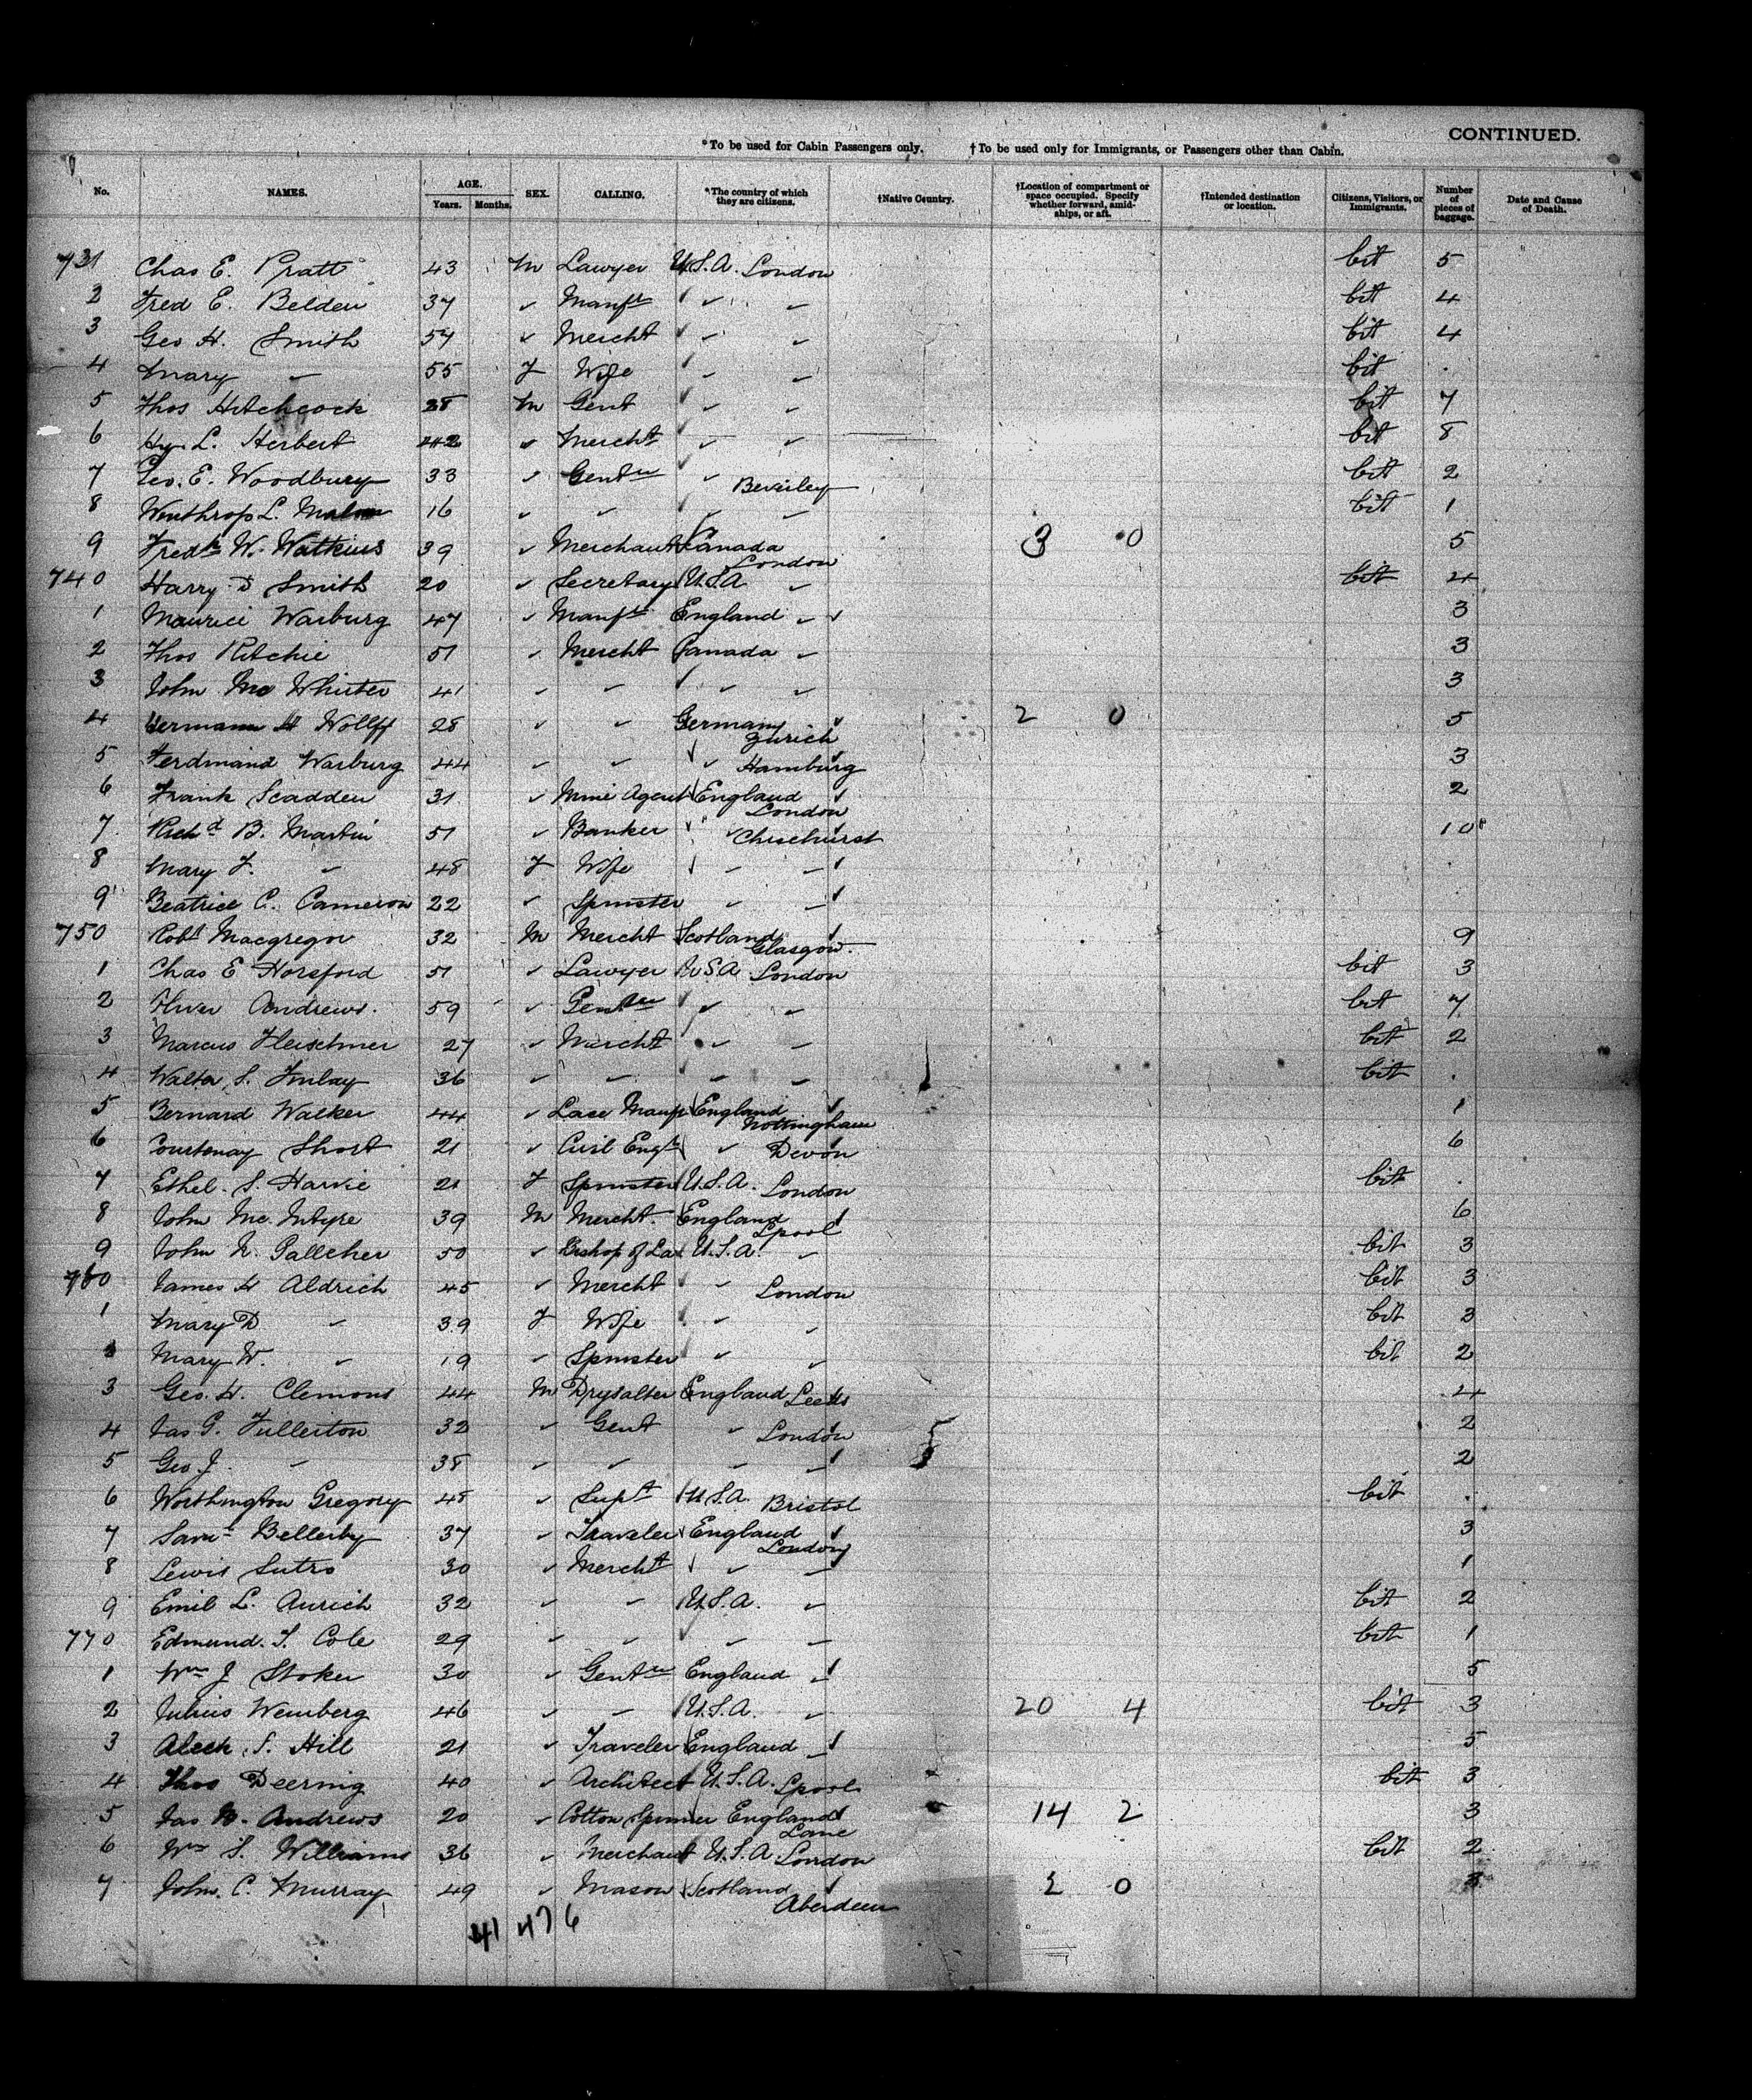 CONTINUED.
*To be used for Cabin Passengers only. †To be used only for Immigrants, or Passengers other than Cabin.
No. NAMES. AGE. Years. Months. SEX. CALLING. *The country of which they are citizens. †Native Country. †Location of compartment or space occupied. Specify whether forward, amid-ships, or aft. †Intended destination or location. Citizens, Visitors, or Immigrants. Number of pieces of baggage. Date and Cause of Death.
731 Chas E. Pratt 43 M Lawyer U.S.A. London bit 5
2 Fred E. Belden 37 " Manfr " " bit 4
3 Geo H. Smith 57 " Mercht " " bit 4
4 Mary " 55 F Wife " " bit .
5 Thos Hitchcock 28 M Gent " " bit 7
6 Hy. L. Herbert 42 " Mercht " " bit 8
7 Geo. E. Woodbury 33 " Gentn " Beverley bit 2
8 Winthrop L. 16 " " " " bit 1
9 Fredk W. Watkins 39 " Merchant Canada London 3 0 5
740 Harry D Smith 20 " Secretary U.S.A " bit 4
1 Maurice Warburg 47 " Manfr England " 3
2 Thos Ritchie 51 " Mercht Canada " 3
3 John Mc Whirter 41 " " " " 3
4 Hermann H Wolff 28 " " Germany Zurich 2 0 5
5 Ferdinand Warburg 44 " " " Hamburg 3
6 Frank Scadden 31 " Mine Agent England London 2
7 Richd B. Martin 51 " Banker " Chiselhurst 10
8 Mary F. " 48 F Wife " " .
9 Beatrice C. Cameron 22 " Spinster " " .
750 Robt Macgregor 32 M Mercht Scotland Glasgow. 9
1 Chas E Horsford 51 " Lawyer U.S.A. London bit 3
2 Oliver Andrews. 59 " Gentn " " bit 7
3 Marcus Fleischner 27 " Mercht " " bit 2
4 Walter S. Finlay 36 " " " " bit .
5 Bernard Walker 44 " Lace Manfr England Nottingham 1
6 Courtenay Short 21 " Civil Engr " Devon 6
7 Ethel. S. Harvie 21 F Spinster U.S.A. London bit .
8 John Mc. Intyre 39 M Mercht. England Lpool 6
9 John N. Gallcher 50 " Bishop of La U.S.A. " bit 3
760 James H Aldrich 45 " Mercht " London bit 3
1 Mary D " 39 F Wife " " bit 3
2 Mary W. " 19 " Spinster " " bit 2
3 Geo. H. Clemons 44 M Drysalter England Leeds 4
4 Jas G. Fullerton 32 " Gent " London 2
5 Geo J. " 38 " " " " 2
6 Worthington Gregory 48 " Supt U.S.A. Bristol bit .
7 Saml Bellerby 37 " Traveler England London 3
8 Lewis Sutro 30 " Mercht " " 1
9 Emil L. Aurich 32 " " U.S.A. " bit 2
770 Edmund. T. Cole 29 " " " " bit 1
1 Wm J Stoker 30 " Gentn England " 5
2 Julius Weinberg 46 " " U.S.A. " 20 4 bit 3
3 Aleck. S. Hill 21 " Traveler England " 5
4 Thos Deering 40 " Architect U.S.A. Lpool bit 3
5 Jas W. Andrews 20 " Cotton Spinner England Lanc 14 2 3
6 Wm S. Williams 36 " Merchant U.S.A. London bit 2
7 John. C. Murray 49 " Mason Scotland Aberdeen 2 0
41 476